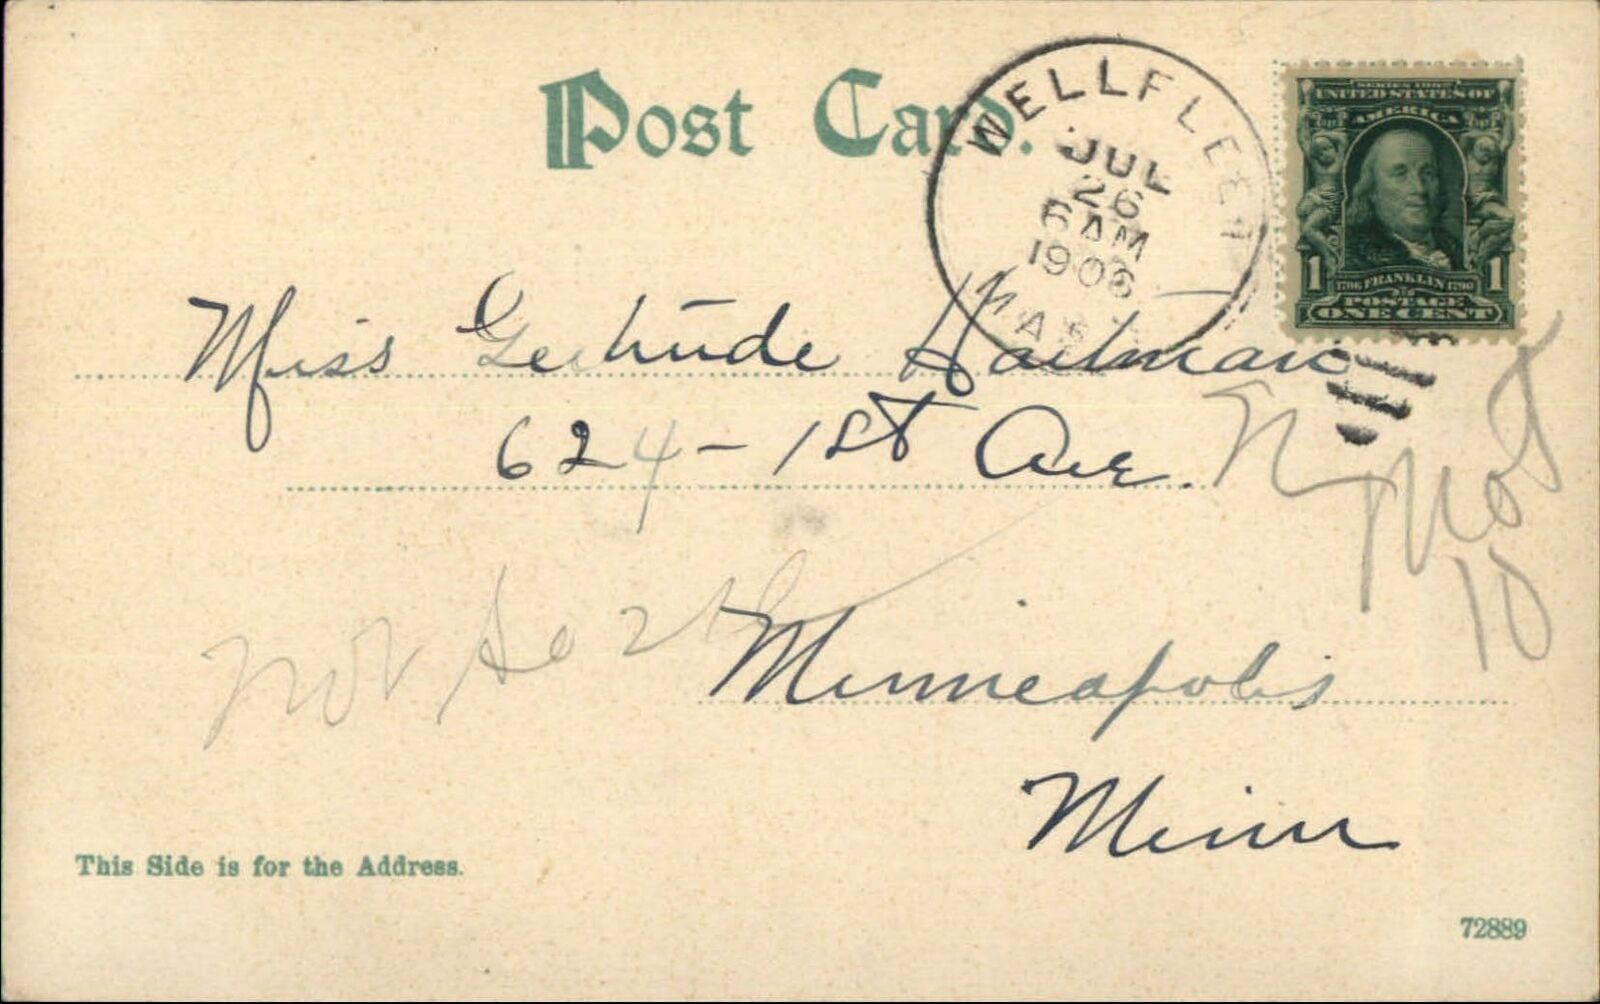 Post Card.
WELLFLEET
JUL
26
6 AM
1906
MASS
SERIES 1902
UNITED STATES OF
AMERICA
1 1
1706 FRANKLIN 1790
POSTAGE
ONE CENT
Miss Gertrude Hartman
624 - 1st Ave. N
not
10
not
Minneapolis
Minn
This Side is for the Address.
72889